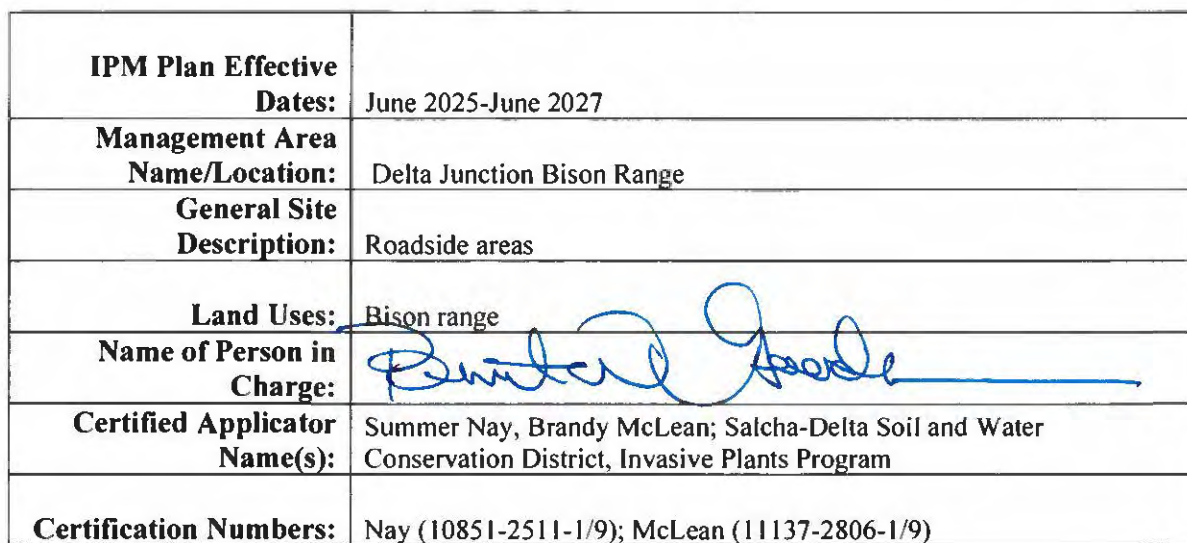 IPM Plan Effective
Dates: June 2025-June 2027
Management Area
Name/Location: Delta Junction Bison Range
General Site
Description: Roadside areas
Land Uses: Bison range
Name of Person in
Charge:
Certified Applicator Summer Nay, Brandy McLean; Salcha-Delta Soil and Water
Name(s): Conservation District, Invasive Plants Program
Certification Numbers: Nay (10851-2511-1/9); McLean (11137-2806-1/9)